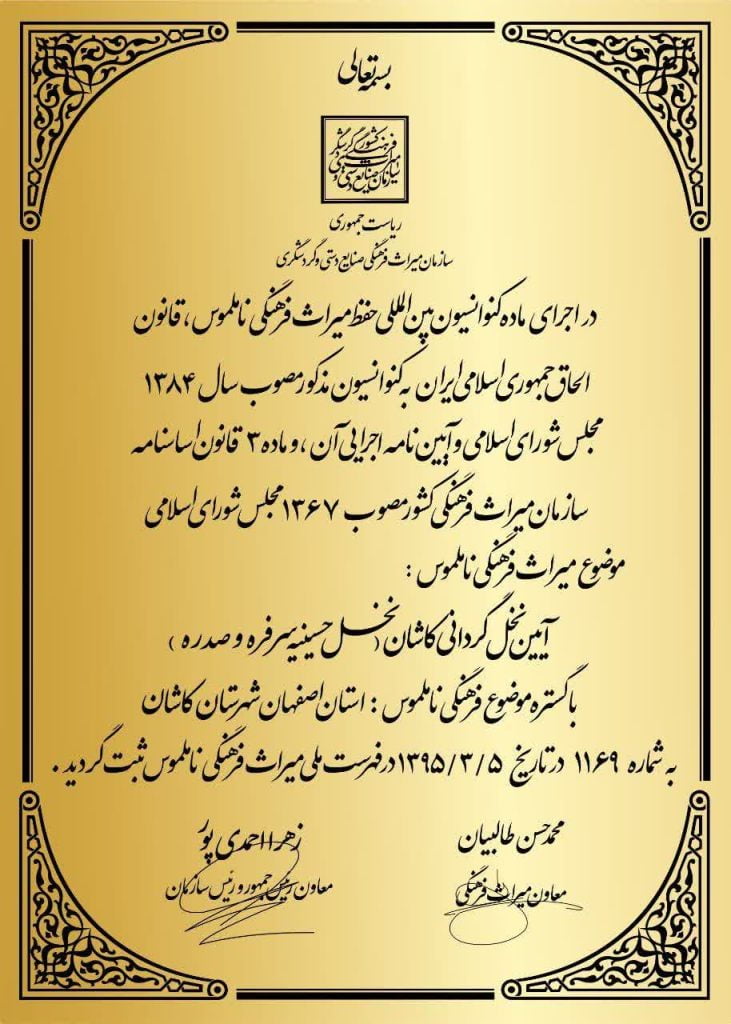 بسمه تعالی
سازمان میراث فرهنگی صنایع دستی و گردشگری کشور
ریاست جمهوری
سازمان میراث فرهنگی صنایع دستی و گردشگری
در اجرای ماده کنوانسیون بین المللی حفظ میراث فرهنگی ناملموس ، قانون
الحاق جمهوری اسلامی ایران به کنوانسیون مذکور مصوب سال ۱۳۸۴
مجلس شورای اسلامی و آیین نامه اجرایی آن ، و ماده ۳ قانون اساسنامه
سازمان میراث فرهنگی کشور مصوب ۱۳۶۷ مجلس شورای اسلامی
موضوع میراث فرهنگی ناملموس :
آیین نخل گردانی کاشان ( نخل حسینیه سرفره و صدره )
با گستره موضوع فرهنگی ناملموس : استان اصفهان شهرستان کاشان
به شماره ۱۱۶۹ در تاریخ ۱۳۹۵/۳/۵ در فهرست ملی میراث فرهنگی ناملموس ثبت گردید .
محمدحسن طالبیان
معاون میراث فرهنگی
زهرا احمدی پور
معاون رئیس جمهور و رئیس سازمان